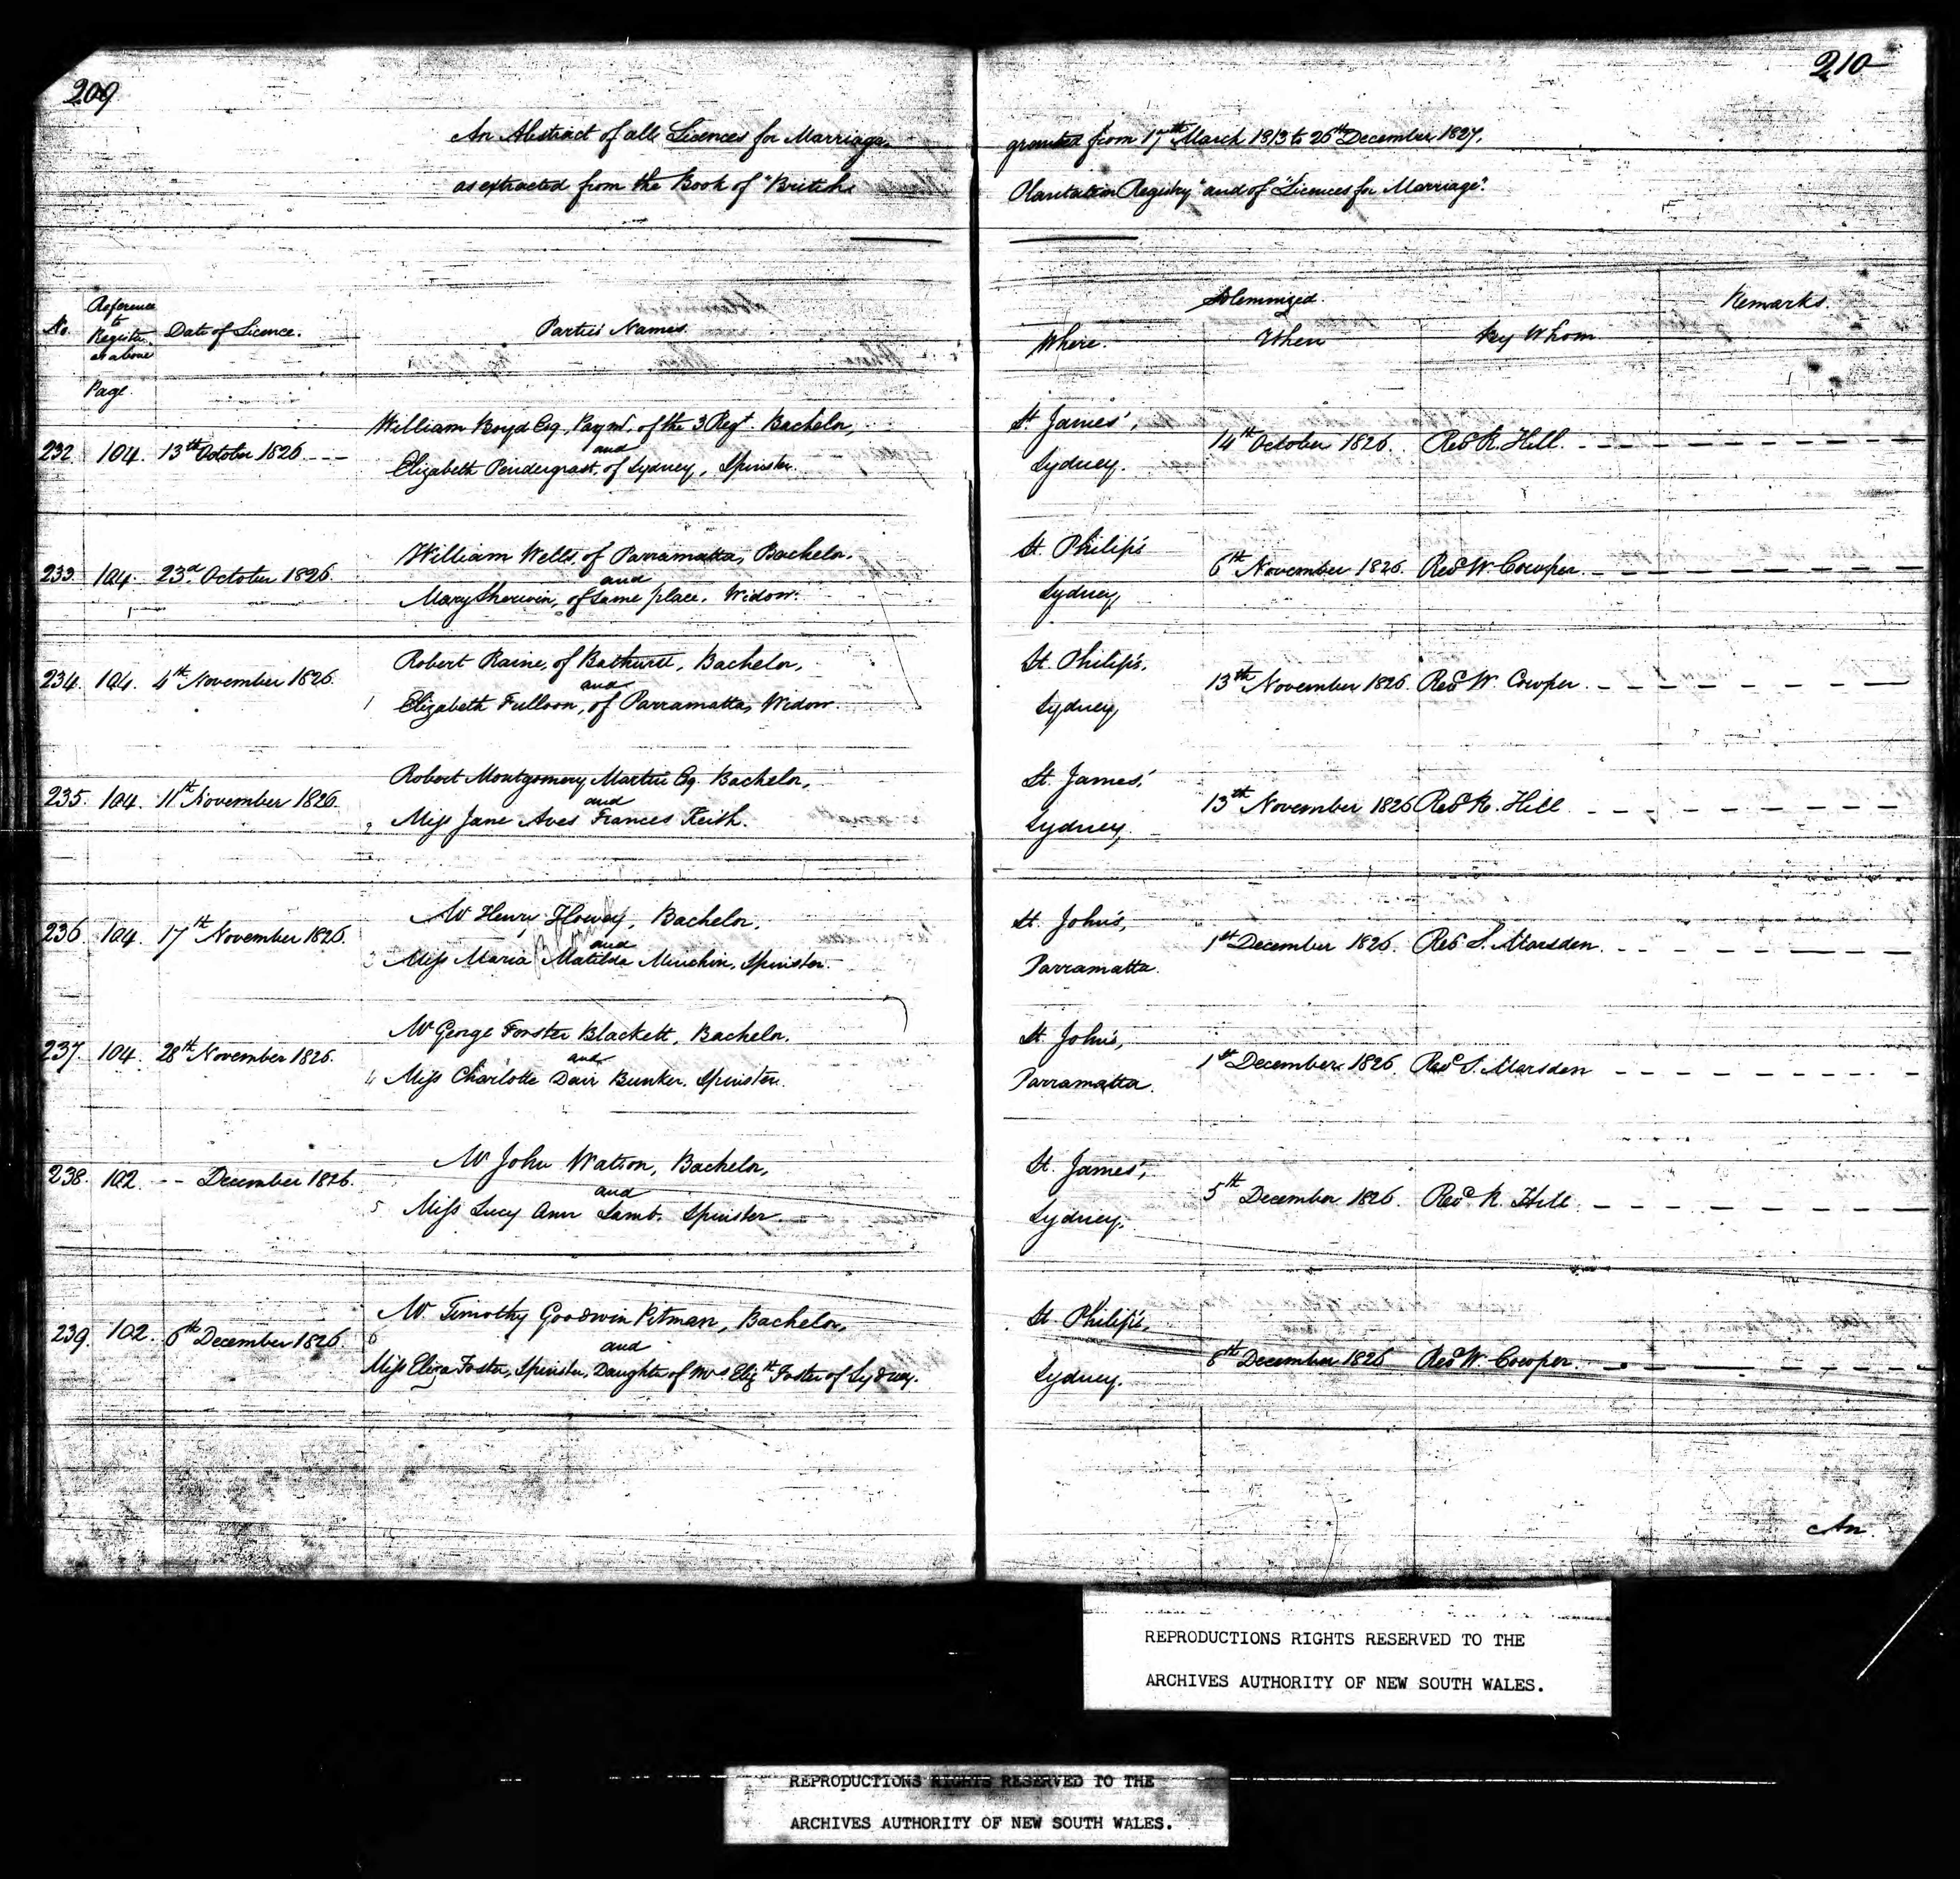 209
210
An Abstract of all Licences for Marriage
as extracted from the Book of "British
granted from 17th March 1813 to 26th December 1827.
Plantation Registry" and of "Licences for Marriage".
No.
Reference
to
Register
as above
Page.
Date of Licence.
Parties Names.
Solemnized.
Where.
When
By Whom
Remarks.
232. 104. 13th October 1826
William Boyd Esq, Paymr. of the 3 Regt. Bachelor,
and
Elizabeth Pendergrast, of Sydney, Spinster.
St. James',
Sydney.
14th October 1826. Revd R. Hill.
233. 104. 23d October 1826.
William Wells, of Parramatta, Bachelor.
and
Mary Sherwin, of same place, Widow.
St. Philip's
Sydney
6th November 1826. Revd W. Cowper.
234. 104. 4th November 1826.
Robert Raine, of Bathurst, Bachelor,
and
1 Elizabeth Fulloon, of Parramatta, Widow.
St. Philip's,
Sydney,
13th November 1826. Revd W. Cowper.
235. 104. 11th November 1826.
Robert Montgomery Martin Esq. Bachelor,
and
2 Miss Jane Aves Frances Keith.
St. James',
Sydney,
13th November 1826 Revd R. Hill
236. 104. 17th November 1826.
Mr Henry Howey, Bachelor,
and
3 Miss Maria Matilda Minchin, Spinster.
St. John's,
Parramatta.
1st December 1826. Revd S. Marsden.
237. 104. 28th November 1826.
Mr George Forster Blackett, Bachelor.
and
4 Miss Charlotte Dair Bunker. Spinster.
St. John's,
Parramatta.
1st December 1826 Revd S. Marsden
238. 102. -- December 1826.
Mr John Watson, Bachelor,
and
5 Miss Lucy Ann Lamb. Spinster.
St. James',
Sydney.
5th December 1826. Revd R. Hill
239. 102. 6th December 1826.
Mr. Timothy Goodwin Pitman, Bachelor,
6
and
Miss Eliza Foster, Spinster, Daughter of Mrs Elizth Foster of Sydney.
St. Philip's,
Sydney.
8th December 1826 Revd W. Cowper.
An
REPRODUCTIONS RIGHTS RESERVED TO THE
ARCHIVES AUTHORITY OF NEW SOUTH WALES.
REPRODUCTIONS RIGHTS RESERVED TO THE
ARCHIVES AUTHORITY OF NEW SOUTH WALES.